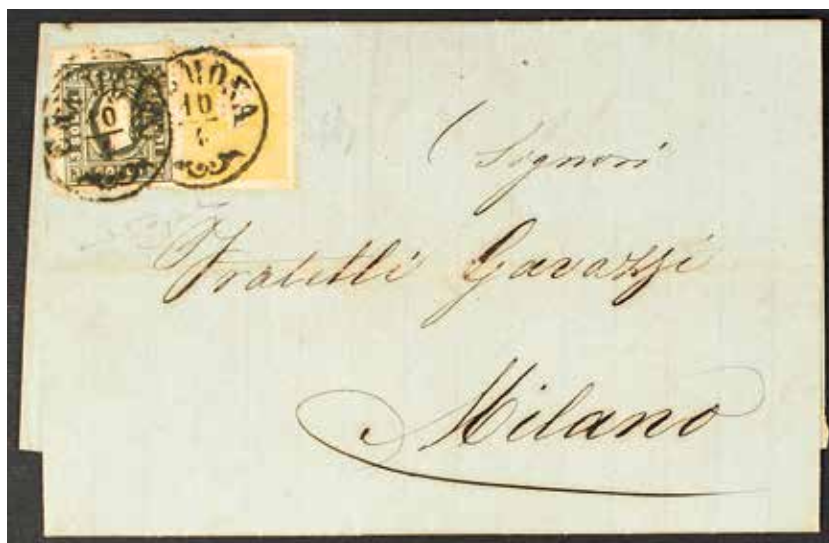 CREMONA
10
4
Signori
Fratelli Gavazzi
Milano